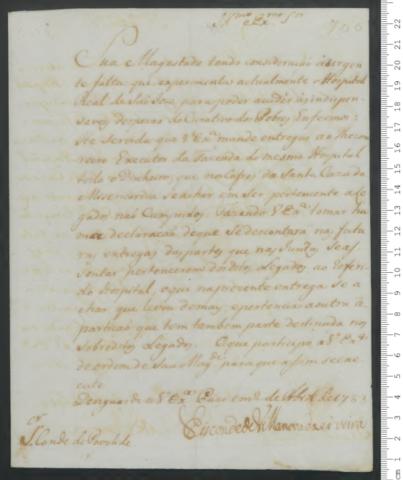 Illmo e Exmo Snr
Sua Magestade tendo consideração à urgen
te falta que experimenta actualmente o Hospital
Real de São Jozé, para poder acudir às indispen
saveis despezas do Curativo dos Pobres Enfermos:
He servida que V Exª mande entregar ao Thezou
reiro Executor da Fazenda do mesmo Hospital
todo o Dinheiro, que no Cofre da Santa Caza da
Misericordia se achar em Ser, pertencente a Le
gados não Cumpridos, fazendo V Exª tomar hu
ma declaração de que se descontará nas futu
ras entregas das partes que nas Juntas se as
sentar pertencerem dos ditos Legados ao referi
do Hospital, o que na prezente entrega se a
char que levou de mais, e pertencia a outra re
partição que tem tambem parte destinada nos
sobreditos Legados. O que participo a V. Exª
de ordem de Sua Magde para que assim se exe
cute.
Deos guarde a V Exª Paço em de Abril de
Visconde de Villanova da Cerveira
Sr Conde de